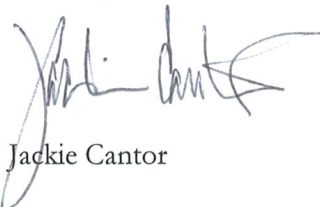 Jackie Cantor
Jackie Cantor